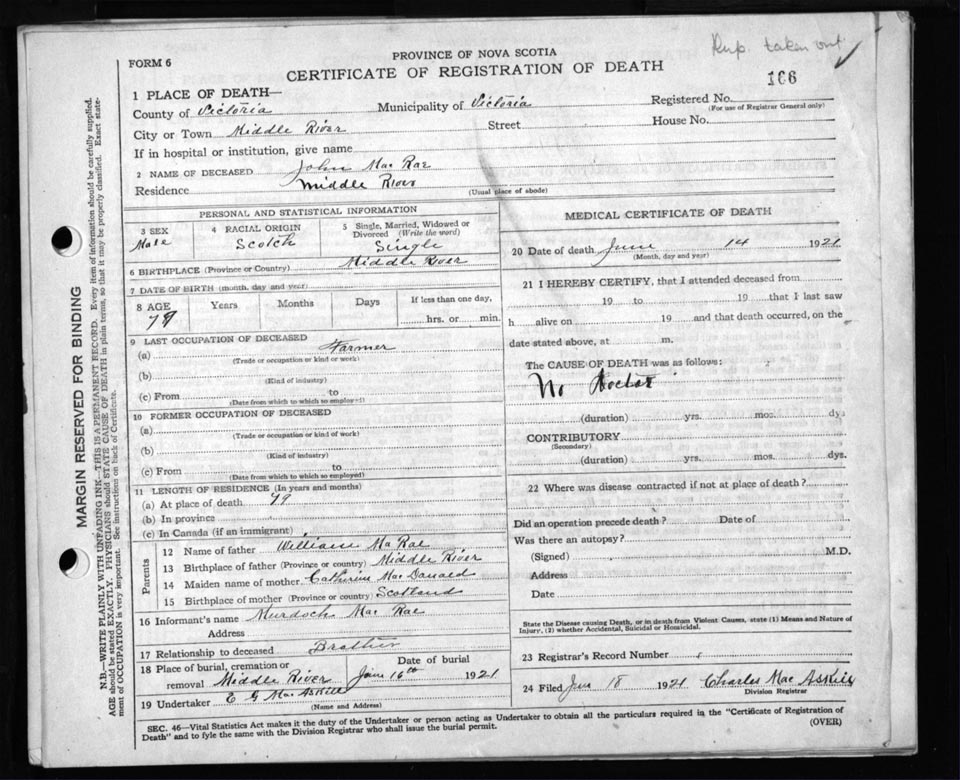 Dup. taken out
PROVINCE OF NOVA SCOTIA
FORM 6
CERTIFICATE OF REGISTRATION OF DEATH
166
1 PLACE OF DEATH—
County of Victoria Municipality of Victoria Registered No.
(For use of Registrar General only)
City or Town Middle River Street House No.
If in hospital or institution, give name
2 NAME OF DECEASED John Mac Rae
Residence Middle River (Usual place of abode)
PERSONAL AND STATISTICAL INFORMATION
3 SEX 4 RACIAL ORIGIN 5 Single, Married, Widowed or Divorced (Write the word)
Male Scotch Single
6 BIRTHPLACE (Province or Country) Middle River
7 DATE OF BIRTH (month, day and year)
8 AGE Years Months Days If less than one day,
79 hrs. or min.
9 LAST OCCUPATION OF DECEASED
(a) Farmer
(Trade or occupation or kind or work)
(b)
(Kind of industry)
(c) From to
(Date from which to which so employed)
10 FORMER OCCUPATION OF DECEASED
(a)
(Trade or occupation or kind of work)
(b)
(Kind of industry)
(c) From to
(Date from which to which so employed)
11 LENGTH OF RESIDENCE (In years and months)
(a) At place of death 79
(b) In province
(c) In Canada (if an immigrant)
Parents
12 Name of father William Ma Rae
13 Birthplace of father (Province or country) Middle River
14 Maiden name of mother Catherine Mac Donald
15 Birthplace of mother (Province or country) Scotland
16 Informant's name Murdoch Mac Rae
Address
17 Relationship to deceased Brother
18 Place of burial, cremation or Date of burial
removal Middle River June 16th 1921
19 Undertaker E G MacAskill
(Name and Address)
MEDICAL CERTIFICATE OF DEATH
20 Date of death June 14 1921
(Month, day and year)
21 I HEREBY CERTIFY, that I attended deceased from
19 to 19 that I last saw
h alive on 19 and that death occurred, on the
date stated above, at m.
The CAUSE OF DEATH was as follows:
No Doctor
(duration) yrs. mos. dys
CONTRIBUTORY
(Secondary)
(duration) yrs. mos. dys.
22 Where was disease contracted if not at place of death?
Did an operation precede death? Date of
Was there an autopsy?
(Signed) M.D.
Address
Date
State the Disease causing Death, or in death from Violent Causes, state (1) Means and Nature of
Injury, (2) whether Accidental, Suicidal or Homicidal.
23 Registrar's Record Number
24 Filed June 18 1921 Charles Mac Askill
Division Registrar
SEC. 46—Vital Statistics Act makes it the duty of the Undertaker or person acting as Undertaker to obtain all the particulars required in the "Certificate of Registration of
Death" and to fyle the same with the Division Registrar who shall issue the burial permit. (OVER)
MARGIN RESERVED FOR BINDING
N.B.—WRITE PLAINLY WITH UNFADING INK—THIS IS A PERMANENT RECORD. Every item of information should be carefully supplied.
AGE should be stated EXACTLY. PHYSICIANS should STATE CAUSE OF DEATH in plain terms, so that it may be properly classified. Exact state-
ment of OCCUPATION is very important. See instructions on back of Certificate.